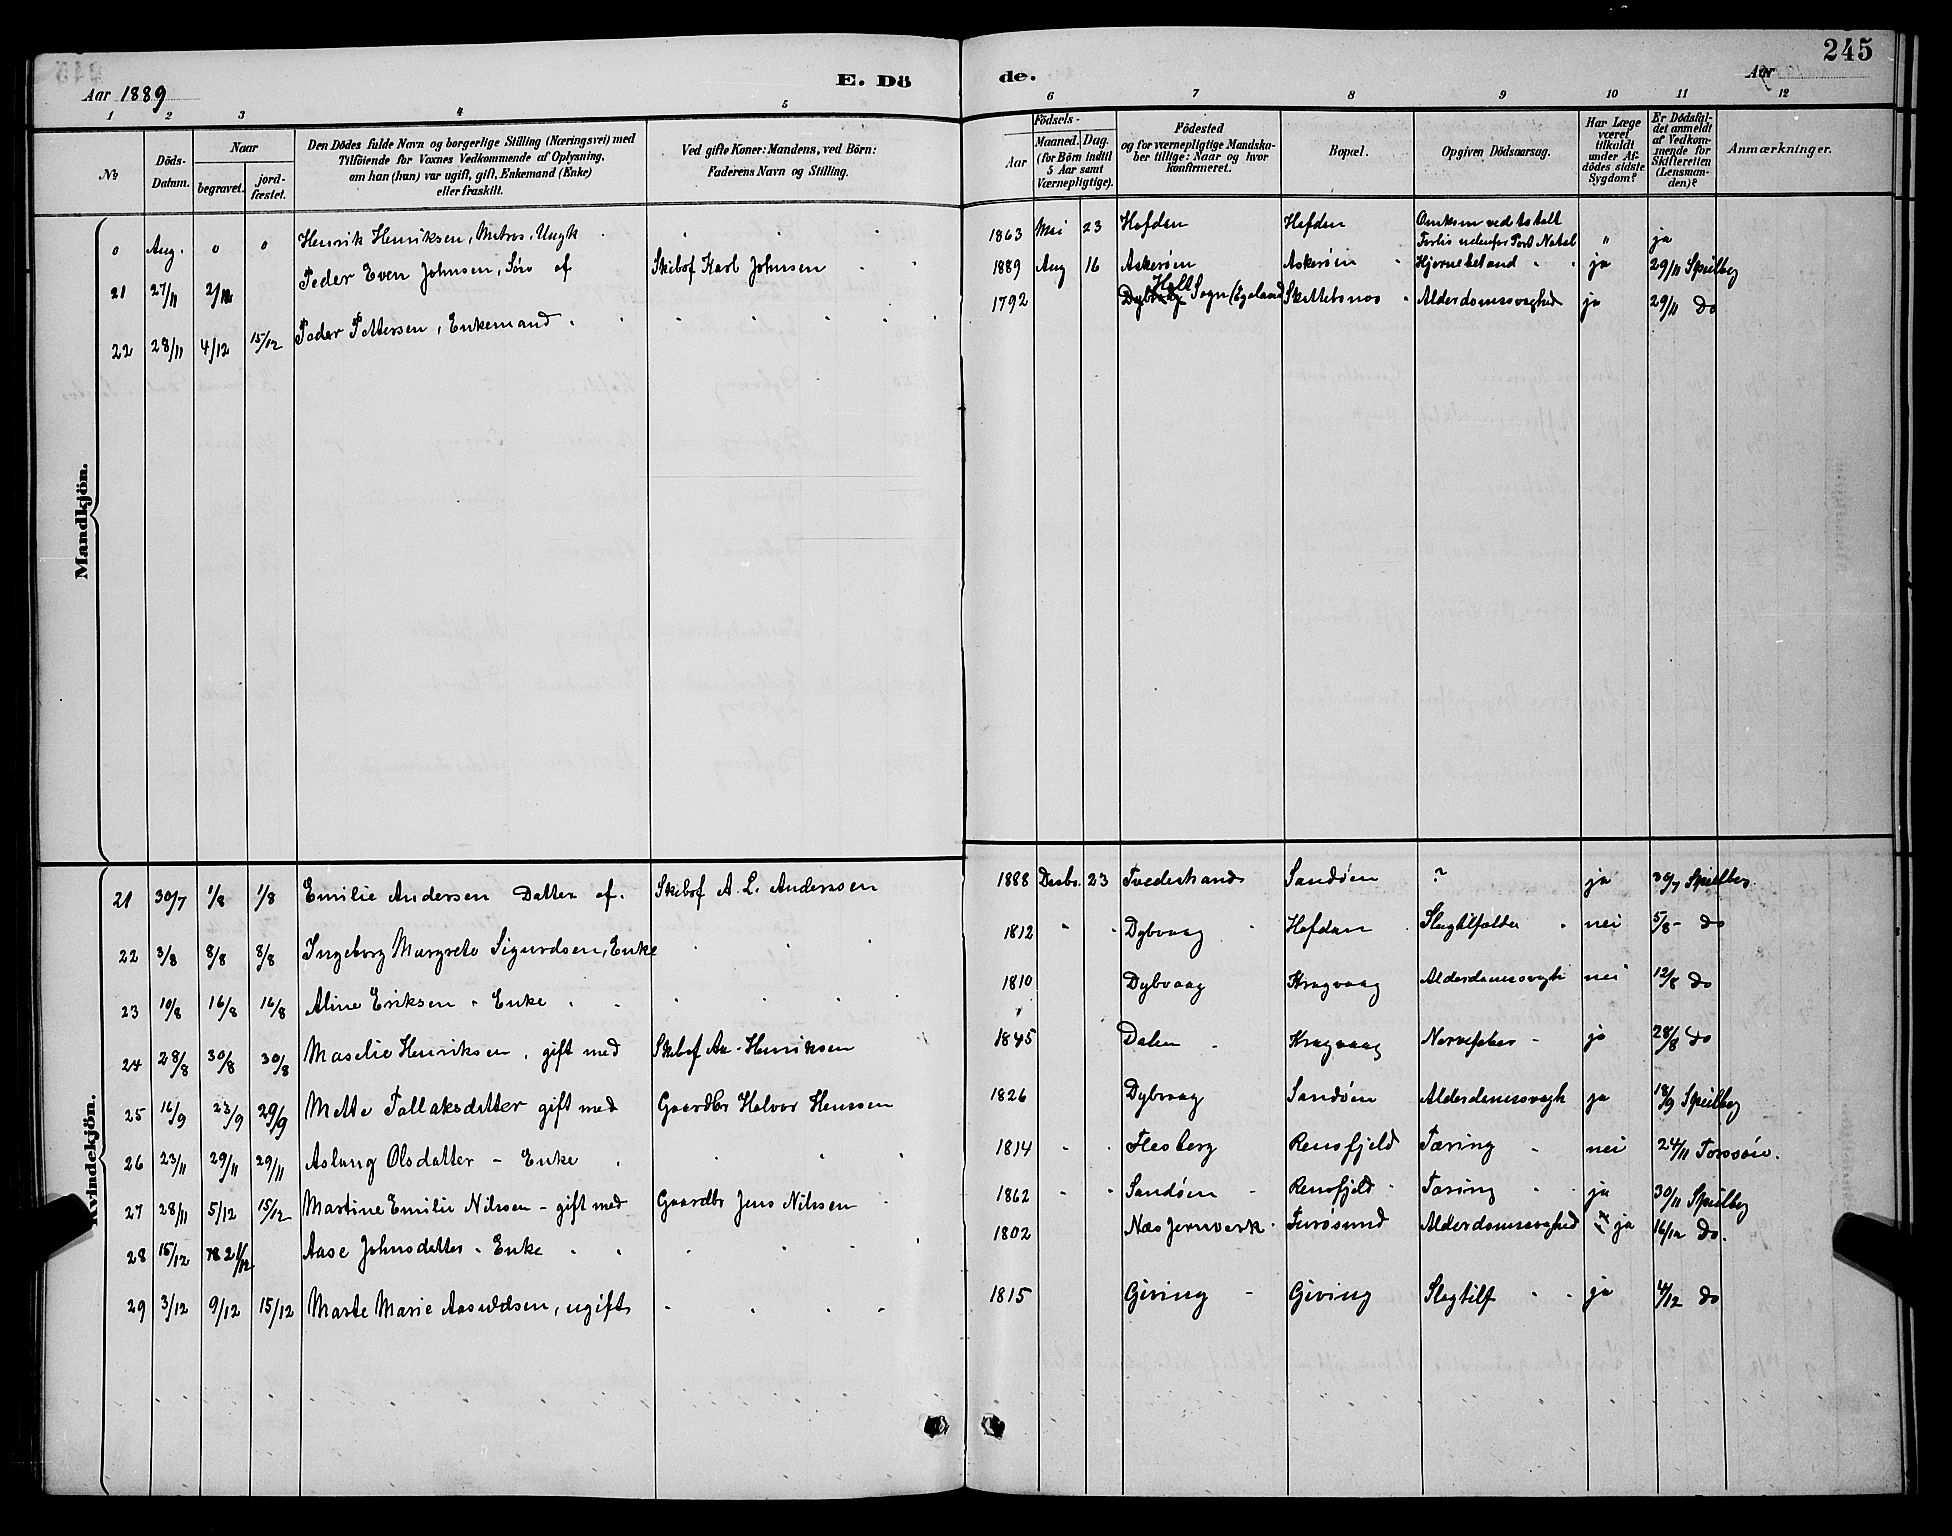 245
Aar 1889
E. Dö
de.
Aar
1 2 3 4 5 6 7 8 9 10 11 12
№
Döds-
Datum.
Naar
begravet.
jord-
fæstet.
Den Dödes fulde Navn og borgerlige Stilling (Næringsvei) med
Tilföiende for Voxnes Vedkommende af Oplysning,
om han (hun) var ugift, gift, Enkemand (Enke)
eller fraskilt.
Ved gifte Koner: Mandens, ved Börn:
Faderens Navn og Stilling.
Födsels-
Aar
Maaned. Dag.
(for Börn indtil
5 Aar samt
Værnepligtige).
Födested
og for værnepligtige Mandska-
ber tillige: Naar og hvor
Konfirmeret.
Bopæl.
Opgiven Dödsaarsag.
Har Læge
været
tilkaldt
under Af-
dödes sidste
Sygdom?
Er Dödsfal-
det anmeldt
af Vedkom-
mende for
Skifteretten
(Lensman-
den)?
Anmærkninger.
Mandkjön.
o Aug. o o Henrik Henriksen, Matros, Ungk 1863 Mai 23 Hofden Hofden Omkom ved totalt
Forlis udenfor Port Natal " ja
21 27/11 2/12 Peder Even Johnsen, Søn af Skibsf Karl Johnsen 1889 Aug 16 Askerøen Askerøen Hjernebetænd ja 29/11 Speilberg
22 28/11 4/12 15/12 Peder Pettersen, Enkemand 1792 Holt Sogn (Egeland Alderdomssvaghed ja 29/11 Do
Kvindekjön.
21 30/7 1/8 1/8 Emilie Andersen Datter af. Skibsf A. L. Anderssen 1888 Decbr. 23 Tvedestrand Sandøen ? ja 30/7 Speilberg
22 3/8 8/8 8/8 Ingeborg Margrete Sigurdsen, Enke 1812 Dybvaag Hofdan Slagtilfælde nei 5/8 - Do
23 10/8 16/8 16/8 Aline Eriksen - Enke 1810 Dybvaag Kragvaag Alderdomssvagh nei 12/8 Do
24 28/8 30/8 30/8 Maselie Henriksen, gift med Skibsf Aa. Henriksen 1845 Dalen Kragvaag Nervefeber - ja 28/8 Do
25 16/9 23/9 29/9 Mette Tallaksdatter gift med Gaardbr Halvor Henssen 1826 Dybvaag Sandøen Alderdomssvagh ja 18/9 Speilberg
26 23/11 29/11 29/11 Aslaug Olsdatter - Enke 1814 Flesberg Rensfjeld Tæring nei 24/11 Torssøn.
27 28/11 5/12 15/12 Martine Emilie Nilssen - gift med Gaardbr Jens Nilssen 1862 Sandøen Rensfjeld Tæring ja 30/11 Speilberg
28 15/12 21/12 Aase Johnsdatter - Enke 1802 Næs Jernverk Furøsund Alderdomssvaghed ja 16/12 Do.
29 3/12 9/12 15/12 Marte Marie Aasuldsen, ugift 1815 Giving Giving Slagtilf ja 4/12 Do